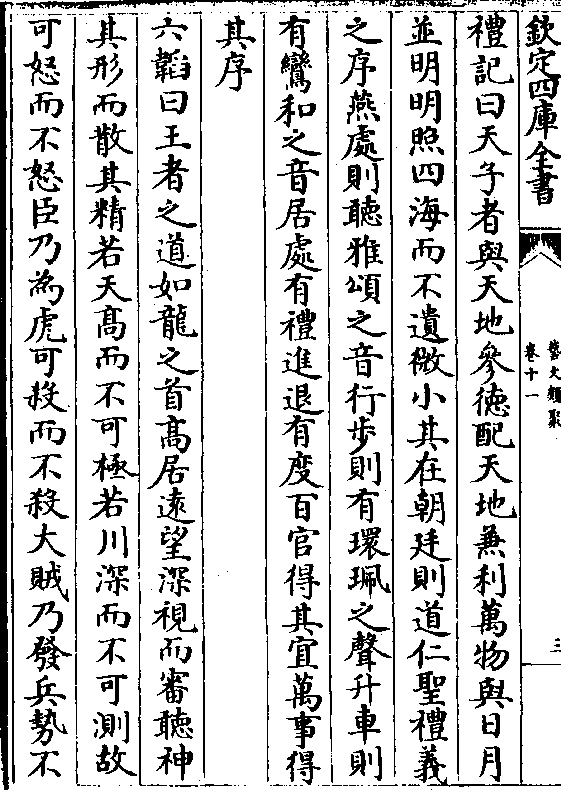 欽定四庫全書
藝文類聚
卷十一
三
禮記曰天子者與天地參德配天地兼利萬物與日月
並明明照四海而不遺微小其在朝廷則道仁聖禮義
之序燕處則聽雅頌之音行步則有環珮之聲升車則
有鸞和之音居處有禮進退有度百官得其宜萬事得
其序
六韜曰王者之道如龍之首高居遠望深視而審聽神
其形而散其精若天高而不可極若川深而不可測故
可怒而不怒臣乃為虎可殺而不殺大賊乃發兵勢不